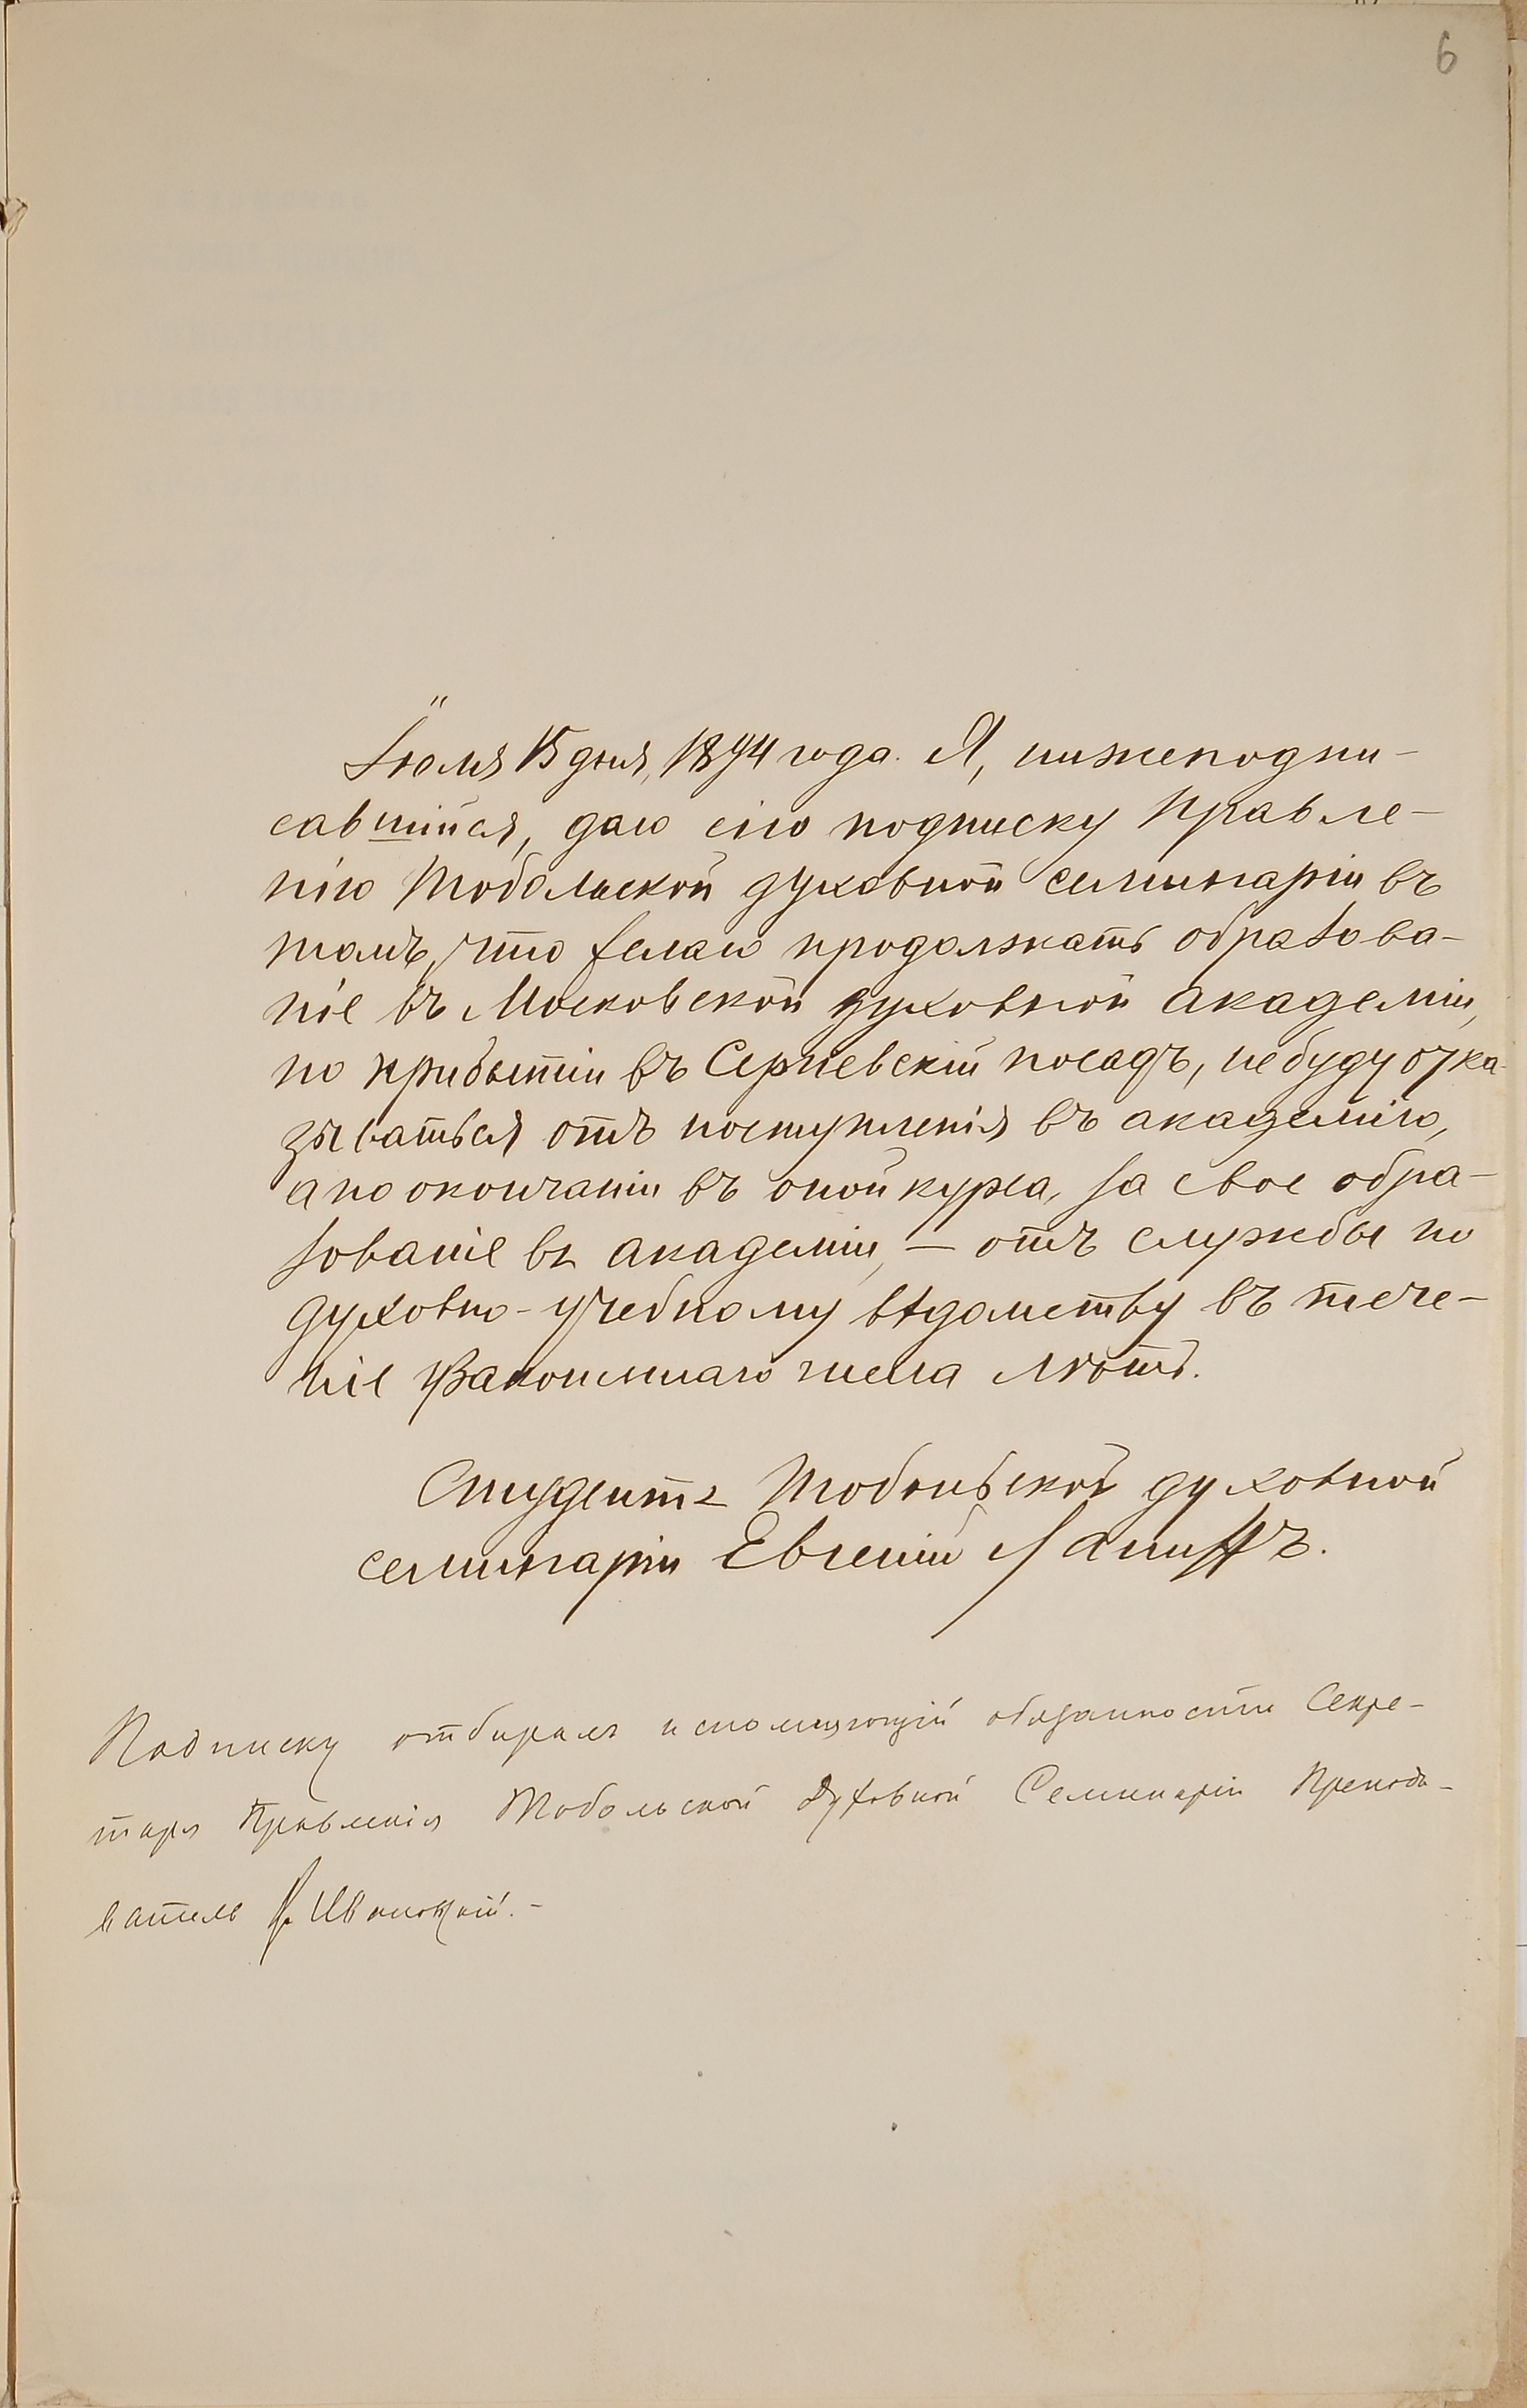 6
Іюля 15 дня, 1894 года. Я, нижеподпи-
савшійся, даю сію подписку Правле-
нію Тобольской духовной семинаріи въ
томъ, что желаю продолжать образова-
ніе въ Московской духовной академіи,
по прибытіи въ Сергіевскій посадъ, не буду отка-
зываться отъ поступленія въ академію,
а по окончаніи въ оной курса, за свое обра-
зованіе въ академіи, — отъ службы по
духовно-учебному вѣдомству въ тече-
ніе узаконеннаго числа лѣтъ.
Студентъ Тобольской духовной
семинаріи Евгеній
Подписку отбиралъ исполняющій обязанности Секре-
таря Правленія Тобольской Духовной Семинаріи Препода-
ватель